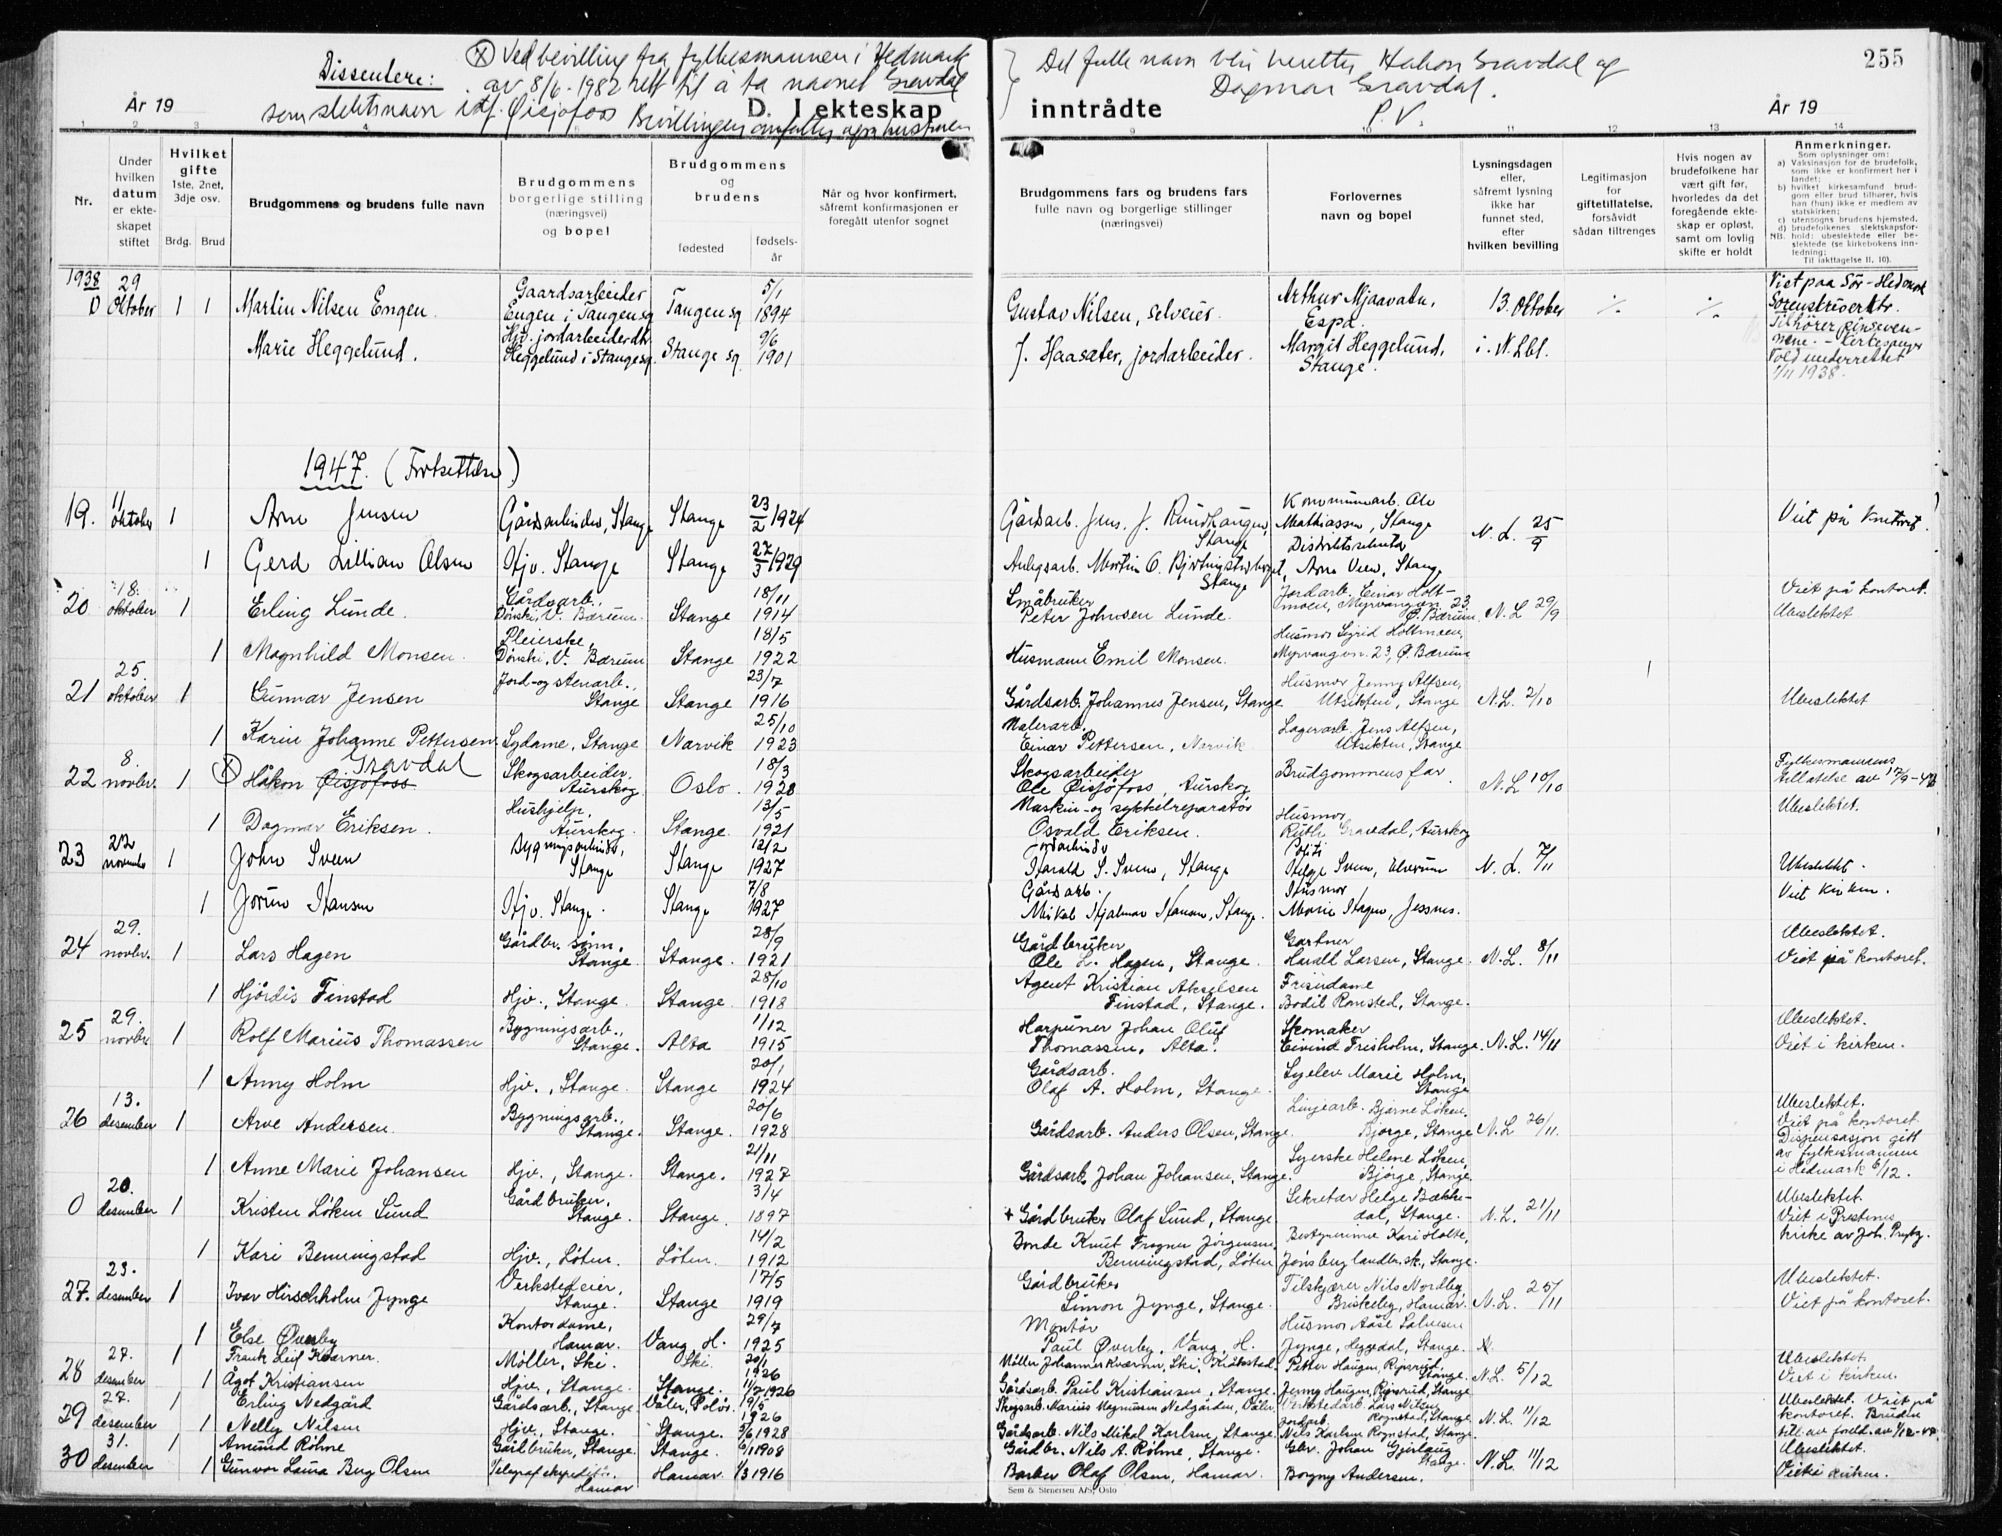 Dissentere:
Ⓧ Ved bevilling fra fylkesmannen i Hedmark
av 8/6-1982 rett til å ta navnet Gravdal
som slektsnavn istf. Øisjøfoss Bevillingen omfatter også hustruen
Det fulle navn blir heretter Håkon Gravdal og
Dagmar Gravdal.
P.V.
255
År 19
D. I ekteskap
inntrådte
År 19
1 2 3 4 9 10 11 12 13 14
Nr.
Under hvilken datum er ekteskapet stiftet
Hvilket gifte
1ste, 2net, 3dje osv.
Brdg. Brud
Brudgommens og brudens fulle navn
Brudgommens borgerlige stilling (næringsvei) og bopel
Brudgommens og brudens
fødested
fødselsår
Når og hvor konfirmert, såfremt konfirmasjonen er foregått utenfor sognet
Brudgommens fars og brudens fars fulle navn og borgerlige stillinger (næringsvei)
Forlovernes navn og bopel
Lysningsdagen eller, såfremt lysning ikke har funnet sted, efter hvilken bevilling
Legitimasjon for giftetillatelse, forsåvidt sådan tiltrenges
Hvis nogen av brudefolkene har vært gift før, hvorledes da det foregående ekteskap er opløst, samt om lovlig skifte er holdt
Anmerkninger.
Som oplysninger om:
a) Vaksinasjon for de brudefolk, som ikke er konfirmert her i landet;
b) hvilket kirkesamfund brudgom eller brud tilhører, hvis han (hun) ikke er medlem av statskirken;
c) utensogns brudens hjemsted.
d) brudefolkenes slektskapsforhold: ubeslektede eller beslektede (se kirkebokens innledning;
NB.
Til iakttagelse II, 10).
1938
D 29 Oktober 1 1 Martin Nilsen Engen. Gaardsarbeider Engen i Tangen sg. Tangen sg 5/1 1894 Gustav Nilsen, selveier. Arthur Mjaavatn, Espa. 13. Oktober ./. ./. Viet paa Sør-Hedmark Sorenskriverktr. Tilhører pinsevennene.
Marie Heggelund. Hjv. jordarbeiderdtr. Heggelund i Stange sg. Stange sg. 9/6 1901 J. Haasæter, jordarbeider. Margit Heggelund, Stange. i N.Lbl. underrettet 1/11 1938.
1947. (Fortsettelse)
19. 11 oktober 1 Arne Jensen Gårdsarbeider, Stange Stange 23/2 1924 Gårdsarb. Jens. J. Rundhaugen, Stange Kommunearb. Ole Mathiassen, Stange N.L. 25/9 Viet på kontoret.
1 Gerd Lillian Olsen Hjv. Stange Stange 27/3 1929 Anlegsarb. Martin O. Stange Arne Veen, Stange
20 18. oktober 1 Erling Lunde. Gårdsarb., Dønski, V. Bærum. Stange 18/11 1914 Småbruker Peter Johnsen Lunde. Jordarb. Einar Holtmoen, Myrvangvn. 23, Ø. Bærum N.L. 29/9 Viet på kontoret. Ubeslektet
1 Magnhild Monsen. Pleierske Dønski, V. Bærum Stange 18/5 1922 Husmann Emil Monsen. Husmor Sigrid Holtmoen, Myrvangvn. 23, Ø. Bærum
21 25. oktober 1 Gunnar Jensen Jord- og stenarb., Stange Stange 23/7 1916 Gårdsarb. Johannes Jensen, Stange Husmor Jenny Alfsen, Utsikten, Stange N.L. 2/10 Ubeslektet
1 Karin Johanne Pettersen Sydame, Stange Narvik 25/10 1923 Malerarb. Einar Pettersen, Narvik Lagerarb. Jens Alfsen, Utsikten, Stange
22 8. novbr. 1 Ⓧ Håkon Øisjøfoss Gravdal Skogsarbeider. Aurskog Oslo. 18/3 1928 Skogsarbeider Ole Øisjøfoss, Aurskog Brudgommens far N.L. 10/10 Fylkesmannens tillatelse av 17/9-47 Ubeslektet.
1 Dagmar Eriksen. Hushjelp, Aurskog. Stange. 13/5 1921 Maskin- og sykkelreparatør Osvald Eriksen. Husmor Ruth Gravdal, Aurskog
23 22 novembr 1 John Sveen Bygningsarbeider, Stange Stange 12/2 1927 Jordarbeider Harald S. Sveen, Stange Politi Helge Sveen, Elverum N.L. 7/11 Ubeslektet. Viet kirken.
1 Jorun Hansen Hjv. Stange. Stange 7/8 1927 Gårdsarb. Mikal Hjalmar Hansen, Stange. Husmor Marie Hagen, Jessnes.
24 29. novbr. 1 Lars Hagen Gårdbr. sønn. Stange Stange. 28/9 1921 Gårdbruker Ole L. Hagen, Stange Gartner Harald Larsen, Stange. N.L. 8/11 Ubeslektet. Viet på kontoret.
1 Hjørdis Finstad Hjv., Stange. Stange. 28/10 1918 Agent Kristian Akselsen Finstad, Stange. Frisørdame Bodil Ramsted, Stange.
25 29. novbr 1 Rolf Marius Thomassen Bygningsarb., Stange. Alta 1/12 1915 Harpuner Johan Oluf Thomassen, Alta. Skomaker Eivind Frisholm, Stange. N.L. 14/11 Ubeslektet. Viet i kirken.
1 Anny Holm Hjv., Stange. Stange 20/1 1924 Gårdsarb. Olaf A. Holm, Stange Syelev Marie Holm, Stange
26 13. desember 1 Arve Andersen. Bygningsarb., Stange. Stange. 20/6 1928 Gårdsarb. Anders Olsen, Stange. Linjearb. Bjarne Løken. Bjørge, Stange N.L. 26/11. Ubeslektet. Viet på kontoret. Dispensasjon gitt av fylkesmannen i Hedmark 6/12.
1 Anne Marie Johansen Hjv., Stange. Stange. 21/11 1927 Gårdsarb. Johan Johansen, Stange. Syerske Helene Løken, Bjørge, Stange
0 20. desember 1 Kristen Løken Sund Gårdbruker, Stange. Stange. 3/4 1897 + Gårdbruker Olaf Sund, Stange Sekretær Helge Bækkedal, Stange. N.L. 21/11 Ubeslektet. Viet i Prestenes kirke av Joh.
1 Kari Benningstad Hjv., Løten. Løten. 14/2 1912 Bonde Knut Frogner Jørgensen Benningstad, Løten Bestyrerinne Kari Holte, Jønsberg landbr.sk., Stange.
27. 23. desember 1 Ivar Hirschholm Jynge Verkstedeier, Stange. Stange 17/5 1919 Gårdbruker Simon Jynge, Stange. Tilskjærer Nils Nordby, Briskeby, Hamar. N.L. 25/11 Ubeslektet. Viet på kontoret.
1 Else Øverby Kontordame, Hamar. Vang H. 29/7 1925 Montør Paul Øverby, Vang, H. Husmor Aase Jynge, Stange.
28 27. desember 1 Frank Leif Kværner. Møller, Ski. Ski. 20/1 1926 Møller Johannes Kværner, Ski, Kråkstad. Petter Haugen, Stange. N.L. 5/12 Ubeslektet. Viet i kirken.
1 Ågot Kristiansen Hjv., Stange. Stange. 11/7 1926 Gårdsarb. Paul Kristiansen, Stange. Jenny Haugen, Stange
29 27. desember 1 Erling Nedgård Gårdsarb., Stange Våler, Solør. 19/5 1926 Skogsarb. Marius Magnussen Nedgården, Våler Verkstedarb. Lars Nilsen Rognstad, Stange N.L. 11/12 Ubeslektet. Viet på kontoret. Bruden
1 Nelly Nilsen Hjv., Stange. Stange. 3/6 1928 Gårdsarb. Nils Mikal Karlsen, Stange. Jordarb. Nils Karlsen Rognstad, Stange
30 31. desember 1 Amund Røhne Gårdbruker, Stange Stange. 6/1 1908 Gårdbr. Nils A. Røhne, Stange. Gbr. Johan Gjerlaug Stange. N.L. 11/12 Ubeslektet. Viet i kirken.
1 Gunvor Laura Berg Olsen Telegrafekspeditør. Hamar Hamar 1/3 1916 Barber Olaf Olsen, Hamar. Borgny Andersen.
Sem & Stenersen A/S, Oslo